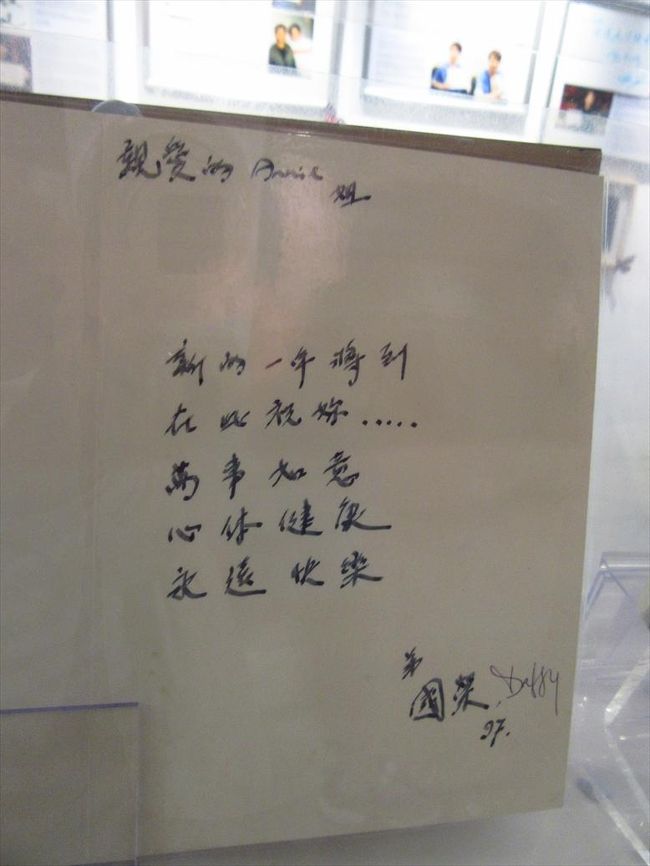 親愛的 Annie
姐
新的一年將到
在此祝妳.....
萬事如意
心体健康
永遠快樂
弟
國榮, Daffy
97.